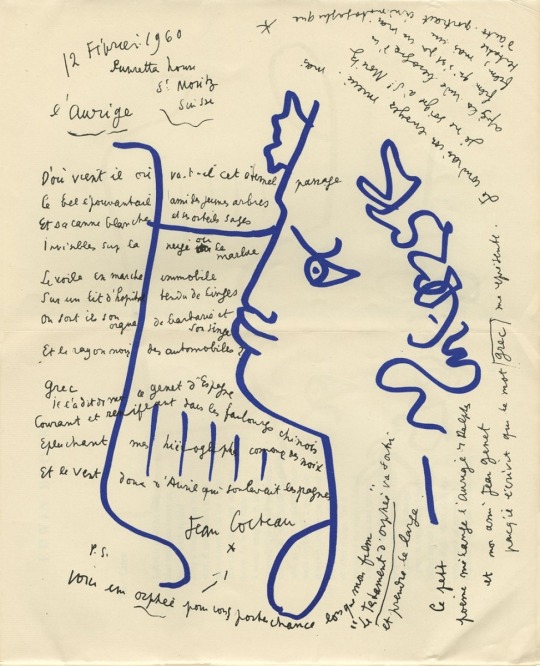 12 Février 1960
Suvretta house
St Moritz
Suisse
l'Aurige
D'où vient il où va-t-il cet éternel passage
Le bel épouvantail ami des jeunes arbres
Et sa canne blanche et orteils sages
Invisibles sur la neige ou le marbre
Le voila en marche immobile
Sur un lit d'hopital tendu de linges
Ou sort il son orgue de barbarie et son singe
Et le rayon noir des automobiles ?
Grec
ce genet d'Espagne
Courant et reniflant dans les faubourgs chinois
Epluchant mes hiéroglyphes comme des noix
Et le vent doux d'Avril qui soulevait les pagnes
Jean Cocteau
*
P.S.
Voici un orphée pour vous porter chance lorsque mon film
"Le testament d'orphée" va sortir
et prendre le large
Ce petit
poème mélange l'aurige de Delphes
et mon ami Jean Genet
parcequ'il écrivit que le mot grec me représente.
Je voudrais
envoyer
merci. moi
je me soigne à St Moritz
après
film qui n'est pas un vrai
film, mais un
d'auto-portrait cinématographique
*